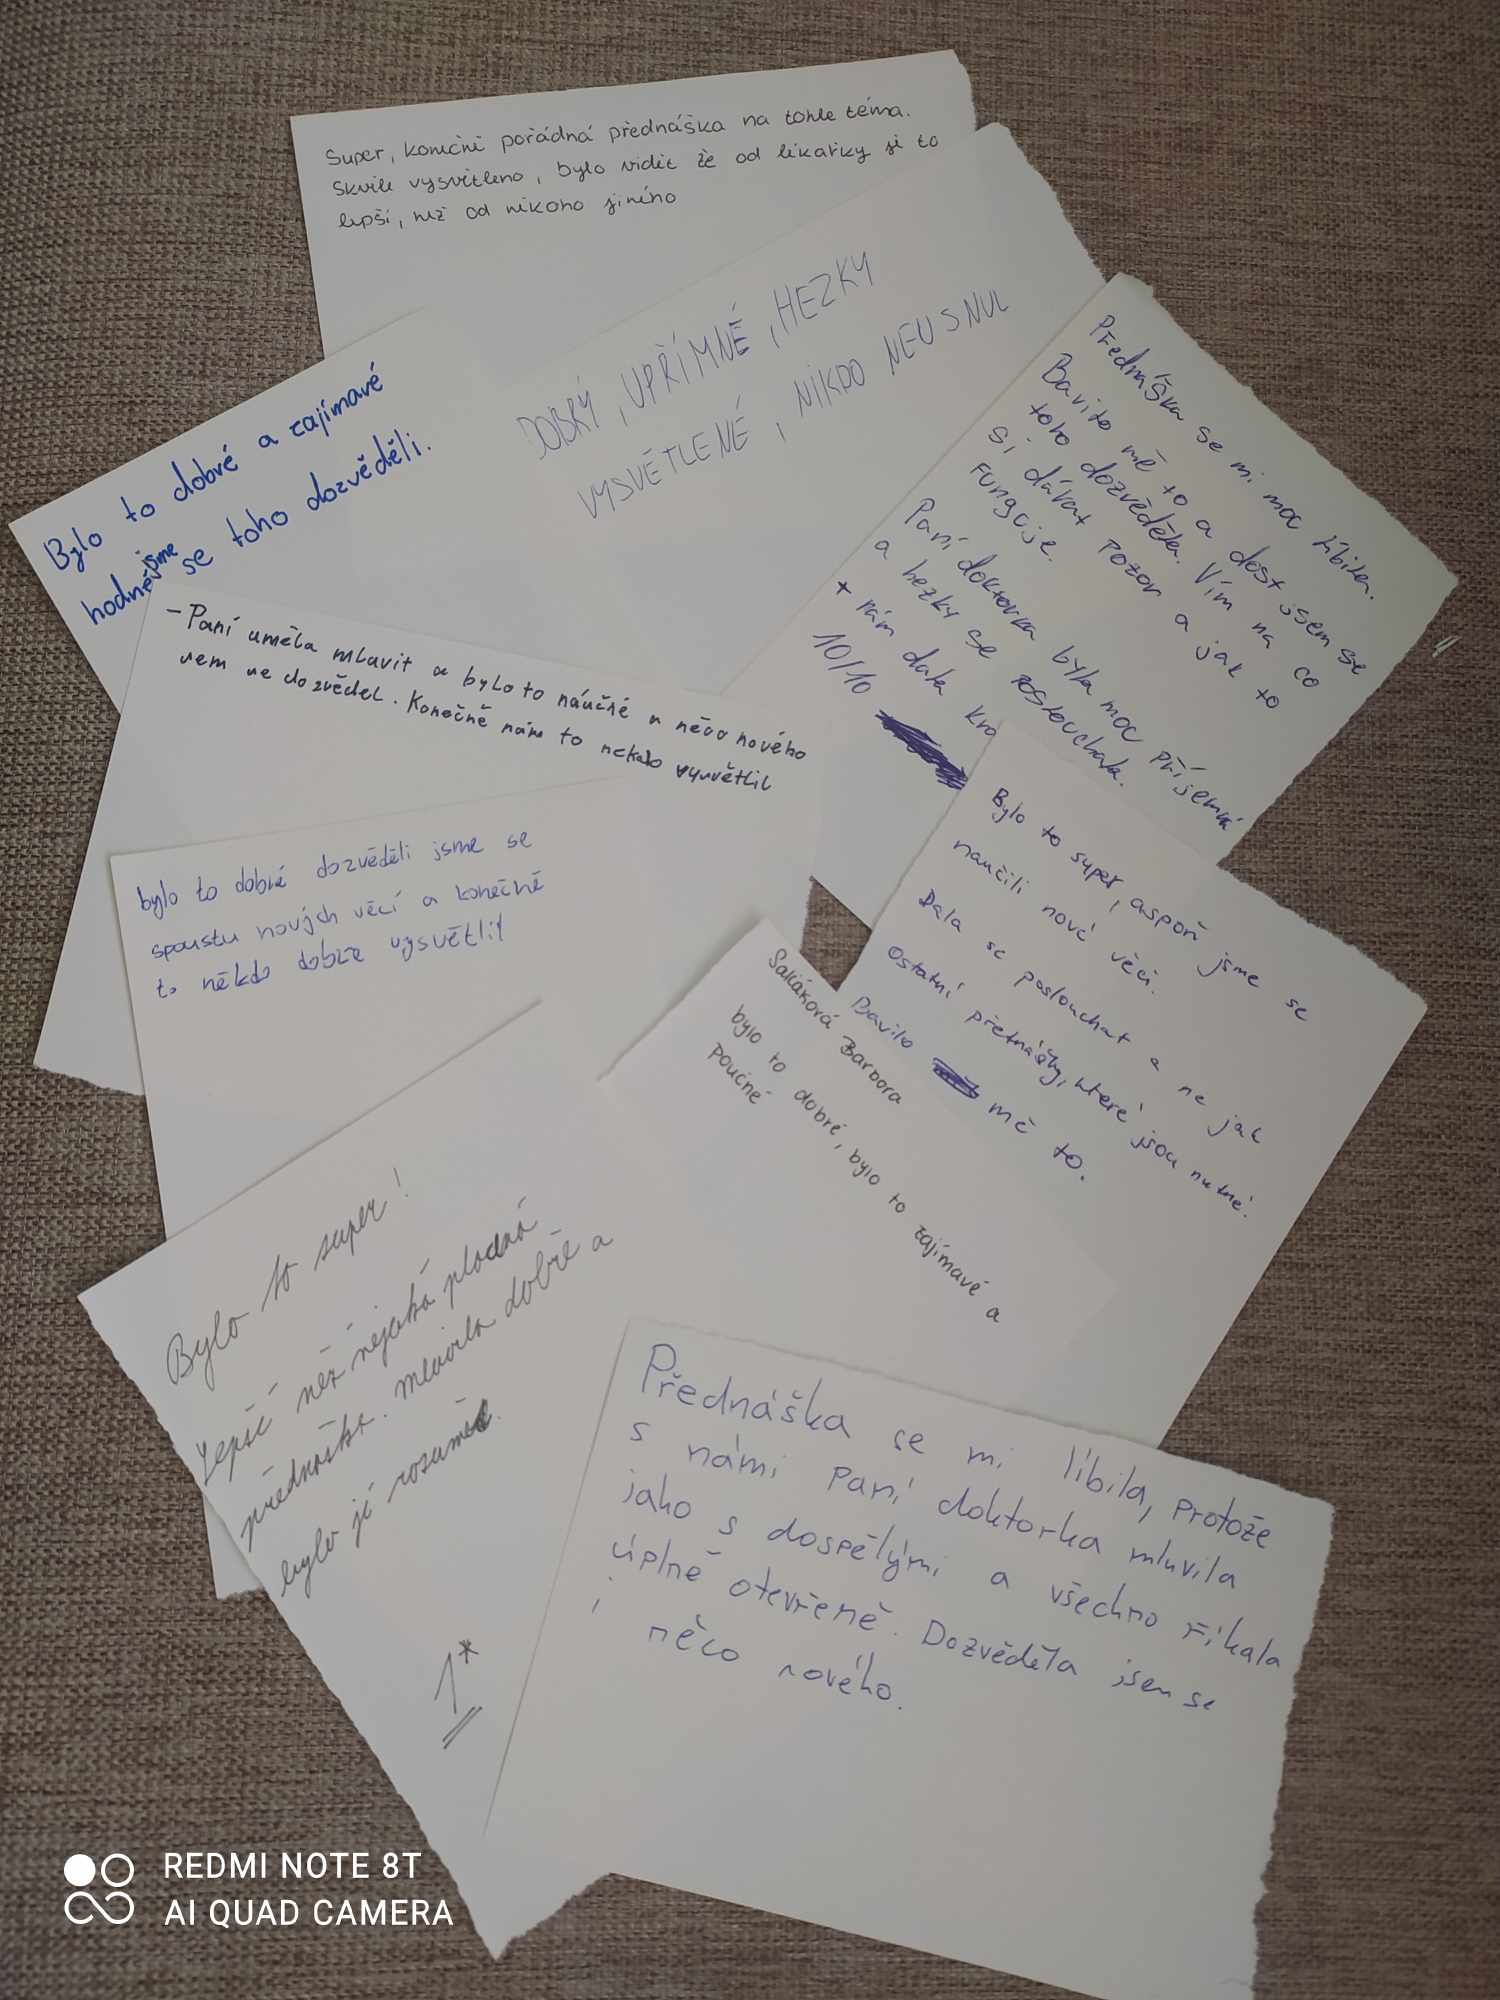 Super, konečně pořádná přednáška na tohle téma.
Skvěle vysvětleno, bylo vidět že od lékařky je to
lepší, než od nikoho jiného
DOBRÝ, UPŘÍMNÉ, HEZKY
VYSVĚTLENÉ, NIKDO NEUSNUL
Bylo to dobré a zajímavé
hodně jsme se toho dozvěděli.
Přednáška se mi moc líbila.
Bavilo mě to a dost jsem se
toho dozvěděla. Vím na co
si dávat pozor a jak to
funguje.
Paní doktorka byla moc příjemná
a hezky se poslouchala.
+ nám dala
10/10
- Paní uměla mluvit a bylo to náučné a něco nového
sem se dozvěděl. Konečně nám to někdo vysvětlil
bylo to dobré dozvěděli jsme se
spoustu nových věcí a konečně
to někdo dobře vysvětlil
Bylo to super, aspoň jsme se
naučili nové věci.
Dala se poslouchat a ne jak
Ostatní přetnášky, které jsou nutné.
Bavilo mě to.
Barbora
bylo to dobré, bylo to zajímavé a
poučné
Bylo to super!
Lepší než nějaká
přednáška. Mluvila dobře a
bylo jí rozumět.
1*
Přednáška se mi líbila, protože
s námi paní doktorka mluvila
jako s dospělými a všechno říkala
úplně otevřeně. Dozvěděla jsem se
i něco nového.
REDMI NOTE 8T
AI QUAD CAMERA